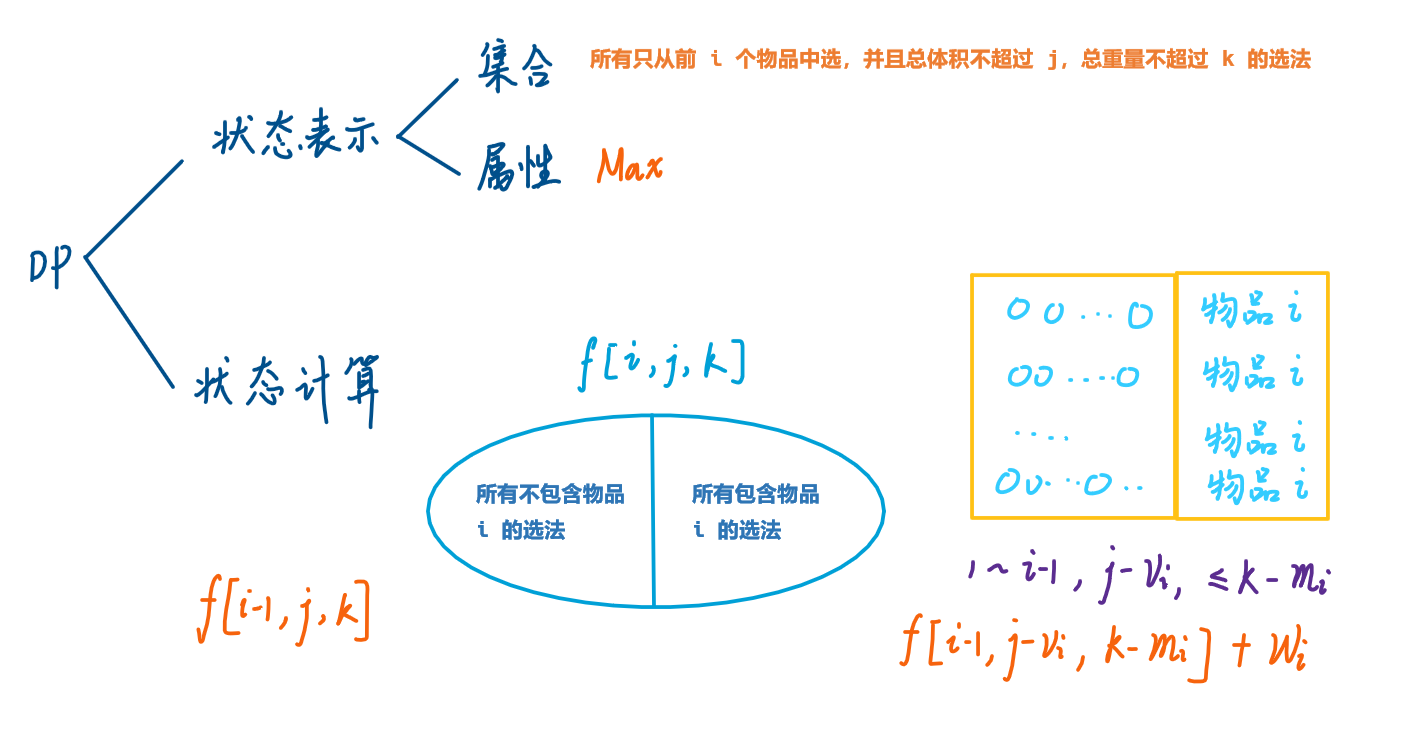 DP
状态表示
集合 所有只从前 i 个物品中选，并且总体积不超过 j，总重量不超过 k 的选法
属性 Max
状态计算
f[i,j,k]
所有不包含物品
i 的选法
所有包含物品
i 的选法
f[i-1,j,k]
0 0 ... 0 物品 i
00 ..... 0 物品 i
.... 物品 i
00. .. 0 .. 物品 i
1 ~ i-1, j-vi, ≤ k-mi
f[i-1, j-vi, k-mi] + wi